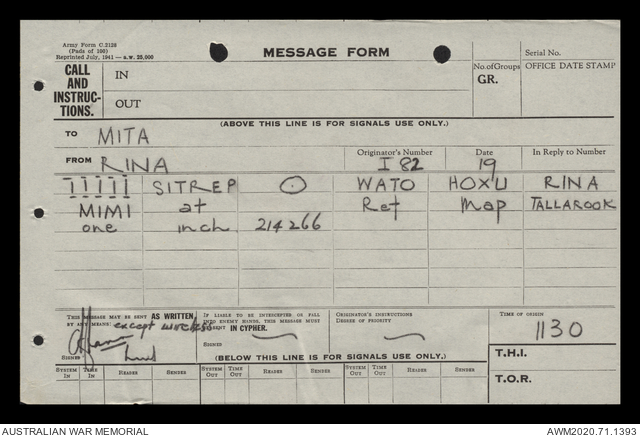 Army Form C.2128
(Pads of 100)
Reprinted July, 1941 — s.w. 25,000
MESSAGE FORM
Serial No.
CALL AND INSTRUC- TIONS.
IN
OUT
No. of Groups
GR.
OFFICE DATE STAMP
(ABOVE THIS LINE IS FOR SIGNALS USE ONLY.)
TO MITA
FROM RINA
Originator's Number
I 82
Date
19
In Reply to Number
SITREP WATO HOXU RINA
MIMI at Ref Map TALLAROOK
one inch 214266
THIS MESSAGE MAY BE SENT AS WRITTEN,
BY ANY MEANS: except wireless
SIGNED
IF LIABLE TO BE INTERCEPTED OR FALL
INTO ENEMY HANDS, THIS MESSAGE MUST
BE SENT IN CYPHER.
SIGNED
ORIGINATOR'S INSTRUCTIONS
DEGREE OF PRIORITY
TIME OF ORIGIN
1130
(BELOW THIS LINE IS FOR SIGNALS USE ONLY.)
T.H.I.
T.O.R.
SYSTEM IN TIME IN READER SENDER SYSTEM OUT TIME OUT READER SENDER SYSTEM OUT TIME OUT READER SENDER
AUSTRALIAN WAR MEMORIAL
AWM2020.71.1393